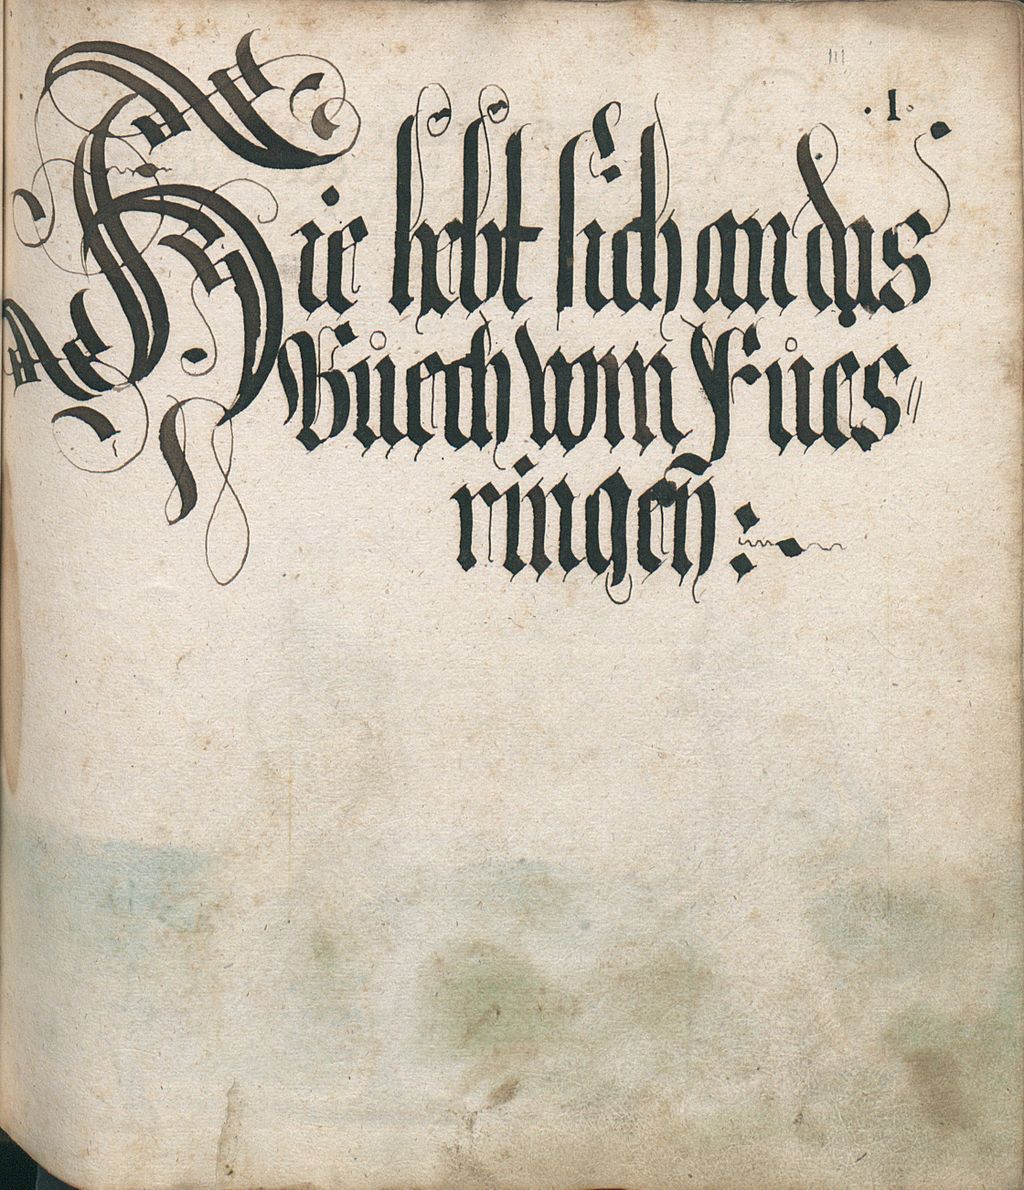 .1.
Hie hebt sich an das
Bůech vom Fůes⸗
ringen̄ :